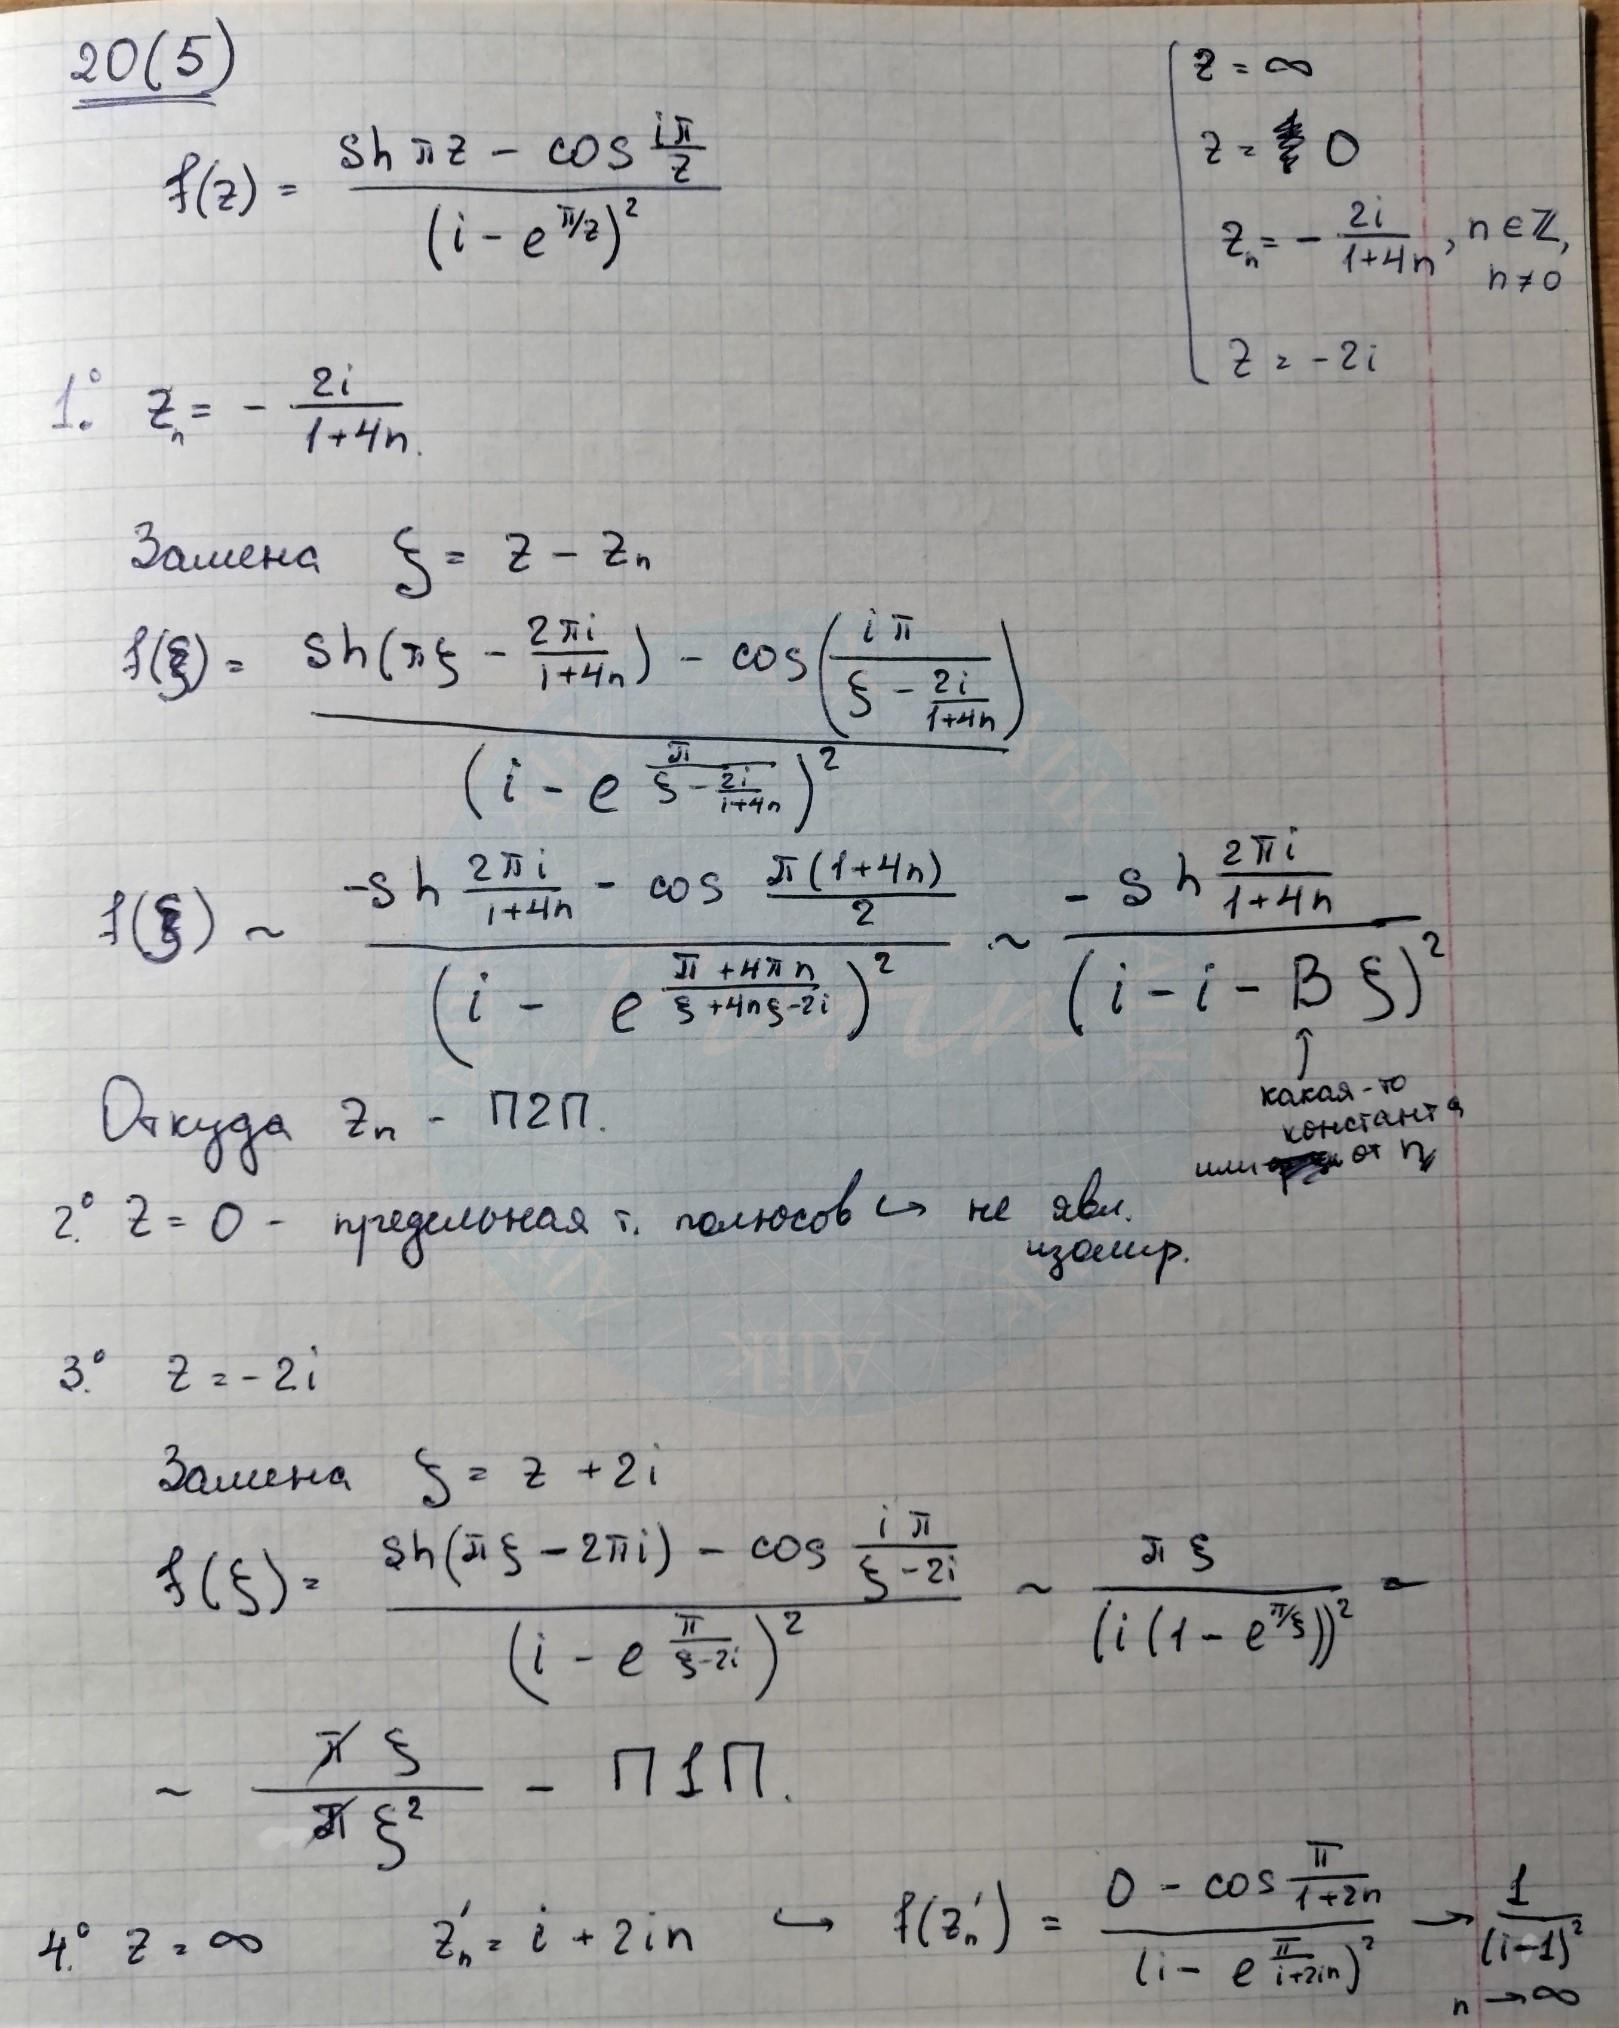 20(5)
f(z) = (sh πz − cos iπ/z) / (i − e^{π/z})²
z = ∞
z = 0
z_n = − 2i/(1+4n), n ∈ ℤ, n ≠ 0
z = −2i
1.° z_n = − 2i/(1+4n).
Замена ξ = z − z_n
f(ξ) = (sh(πξ − 2πi/(1+4n)) − cos(iπ/(ξ − 2i/(1+4n)))) / (i − e^{π/(ξ − 2i/(1+4n))})²
f(ξ) ~ (−sh 2πi/(1+4n) − cos π(1+4n)/2) / (i − e^{(π+4πn)/(ξ+4nξ−2i)})² ~ (− sh 2πi/(1+4n)) / (i − i − Bξ)²
↑
какая-то
константа
или от n
Откуда z_n - П2П.
2.° z = 0 - предельная т. полюсов ↪ не явл.
изолир.
3.° z = −2i
Замена ξ = z + 2i
f(ξ) = (sh(πξ − 2πi) − cos iπ/(ξ − 2i)) / (i − e^{π/(ξ−2i)})² ~ πξ / (i(1 − e^{π/ξ}))² −
~ πξ / πξ² − П1П.
4.° z = ∞ z'_n = i + 2in ↪ f(z'_n) = (0 − cos π/(1+2n)) / (i − e^{π/(i+2in)})² → 1/(i−1)²
n → ∞